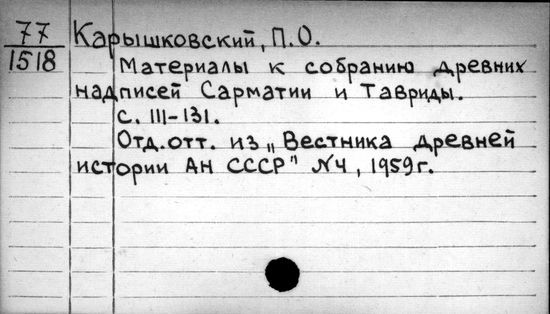 77 Карышковский, П.О.
1518 Материалы к собранию древних
надписей Сарматии и Тавриды.
с. 111-131.
Отд.отт. из „Вестника древней
истории АН СССР" №4, 1959г.